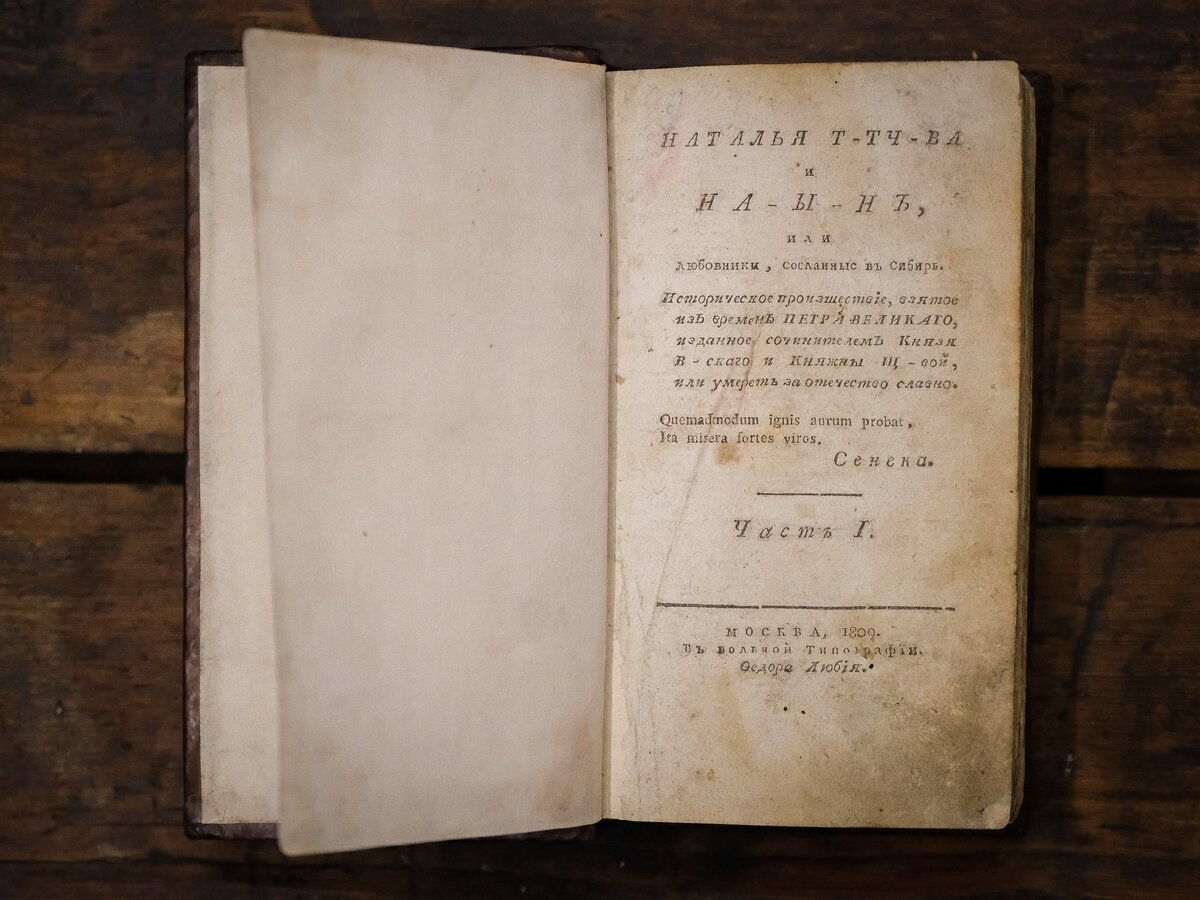 НАТАЛЬЯ Т-ТЧ-ВА
и
НА-Ы-НЪ,
или
любовники, сосланные въ Сибирь.
Историческое произшествіе, взятое
изъ временъ ПЕТРА ВЕЛИКАГО,
изданное сочинителемъ Князя
В-скаго и Княжны Щ-вой,
или умереть за отечество славно.
Quemadmodum ignis aurum probat,
Ita misera fortes viros.
Сенека.
Часть I.
МОСКВА, 1809.
Въ вольной Типографіи.
Ѳедора Любія.